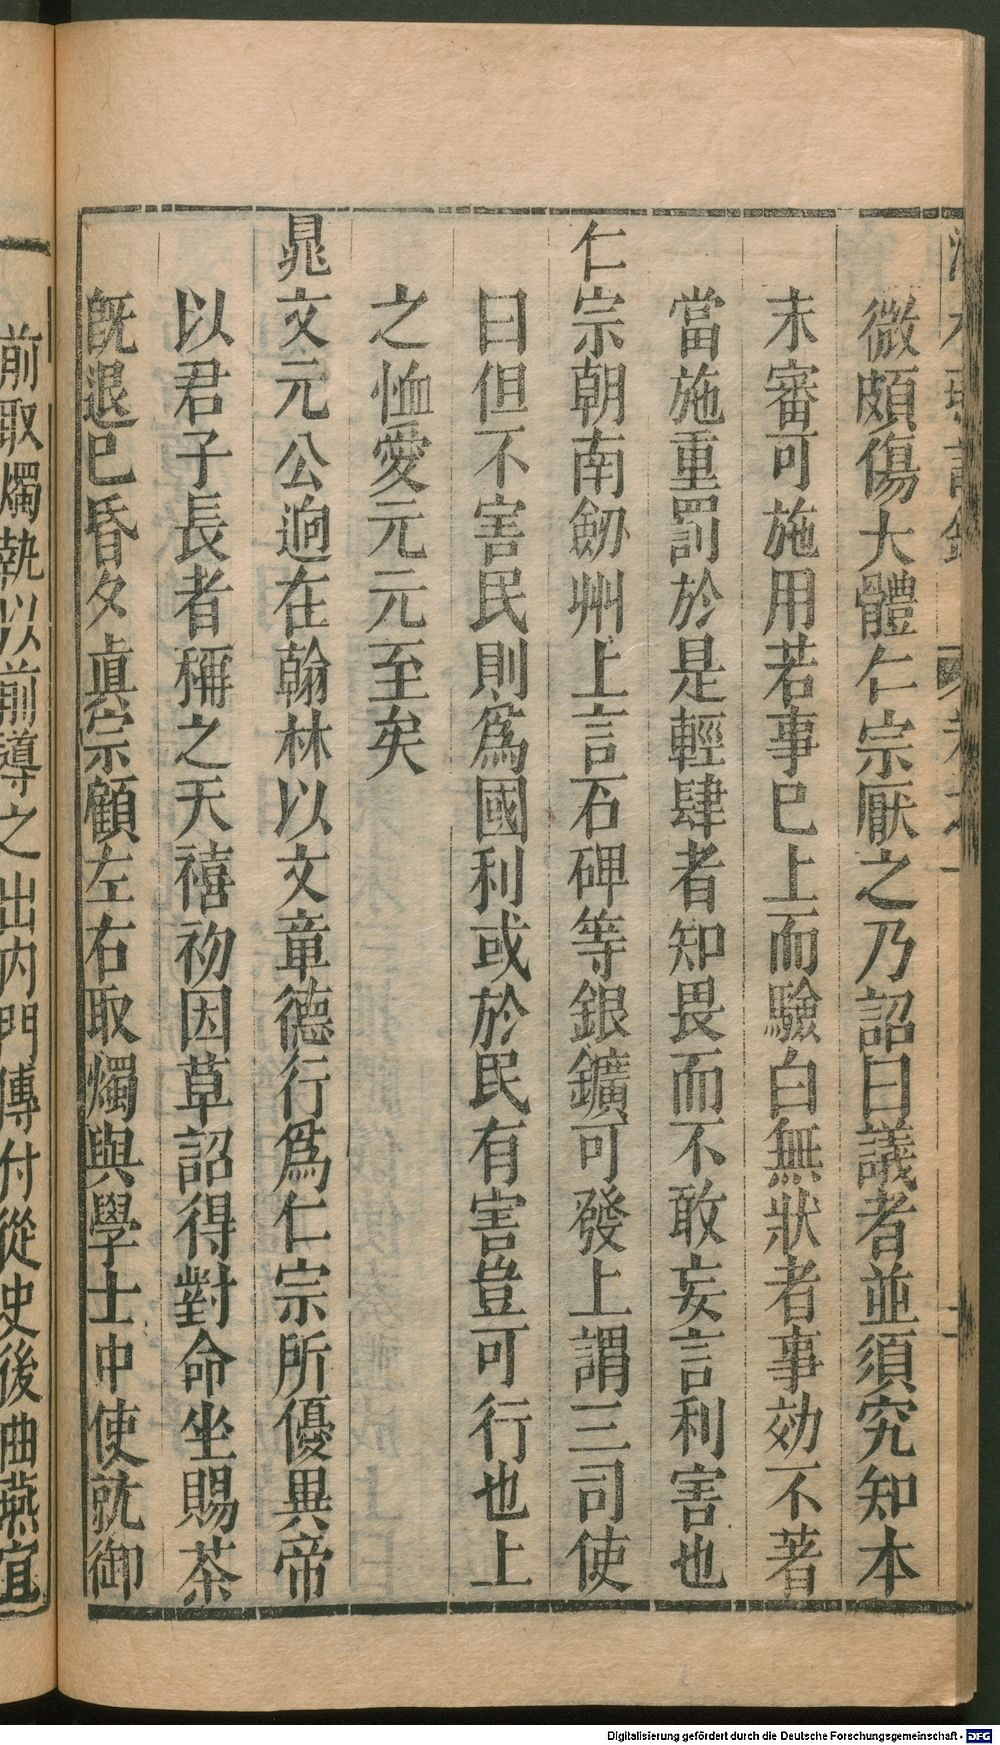 微頗傷大體仁宗厭之乃詔曰議者並須究知本
末審可施用若事已上而驗白無狀者事効不著
當施重罰於是輕肆者知畏而不敢妄言利害也
仁宗朝南劒州上言石碑等銀鑛可發上謂三司使
曰但不害民則爲國利或於民有害豈可行也上
之恤愛元元至矣
晁文元公逈在翰林以文章德行爲仁宗所優異帝
以君子長者稱之天禧初因草詔得對命坐賜茶
旣退已昏夕眞宗顧左右取燭與學士中使就御
前取燭執以前導之出內門傳付從史後曲燕宜
Digitalisierung gefördert durch die Deutsche Forschungsgemeinschaft - DFG